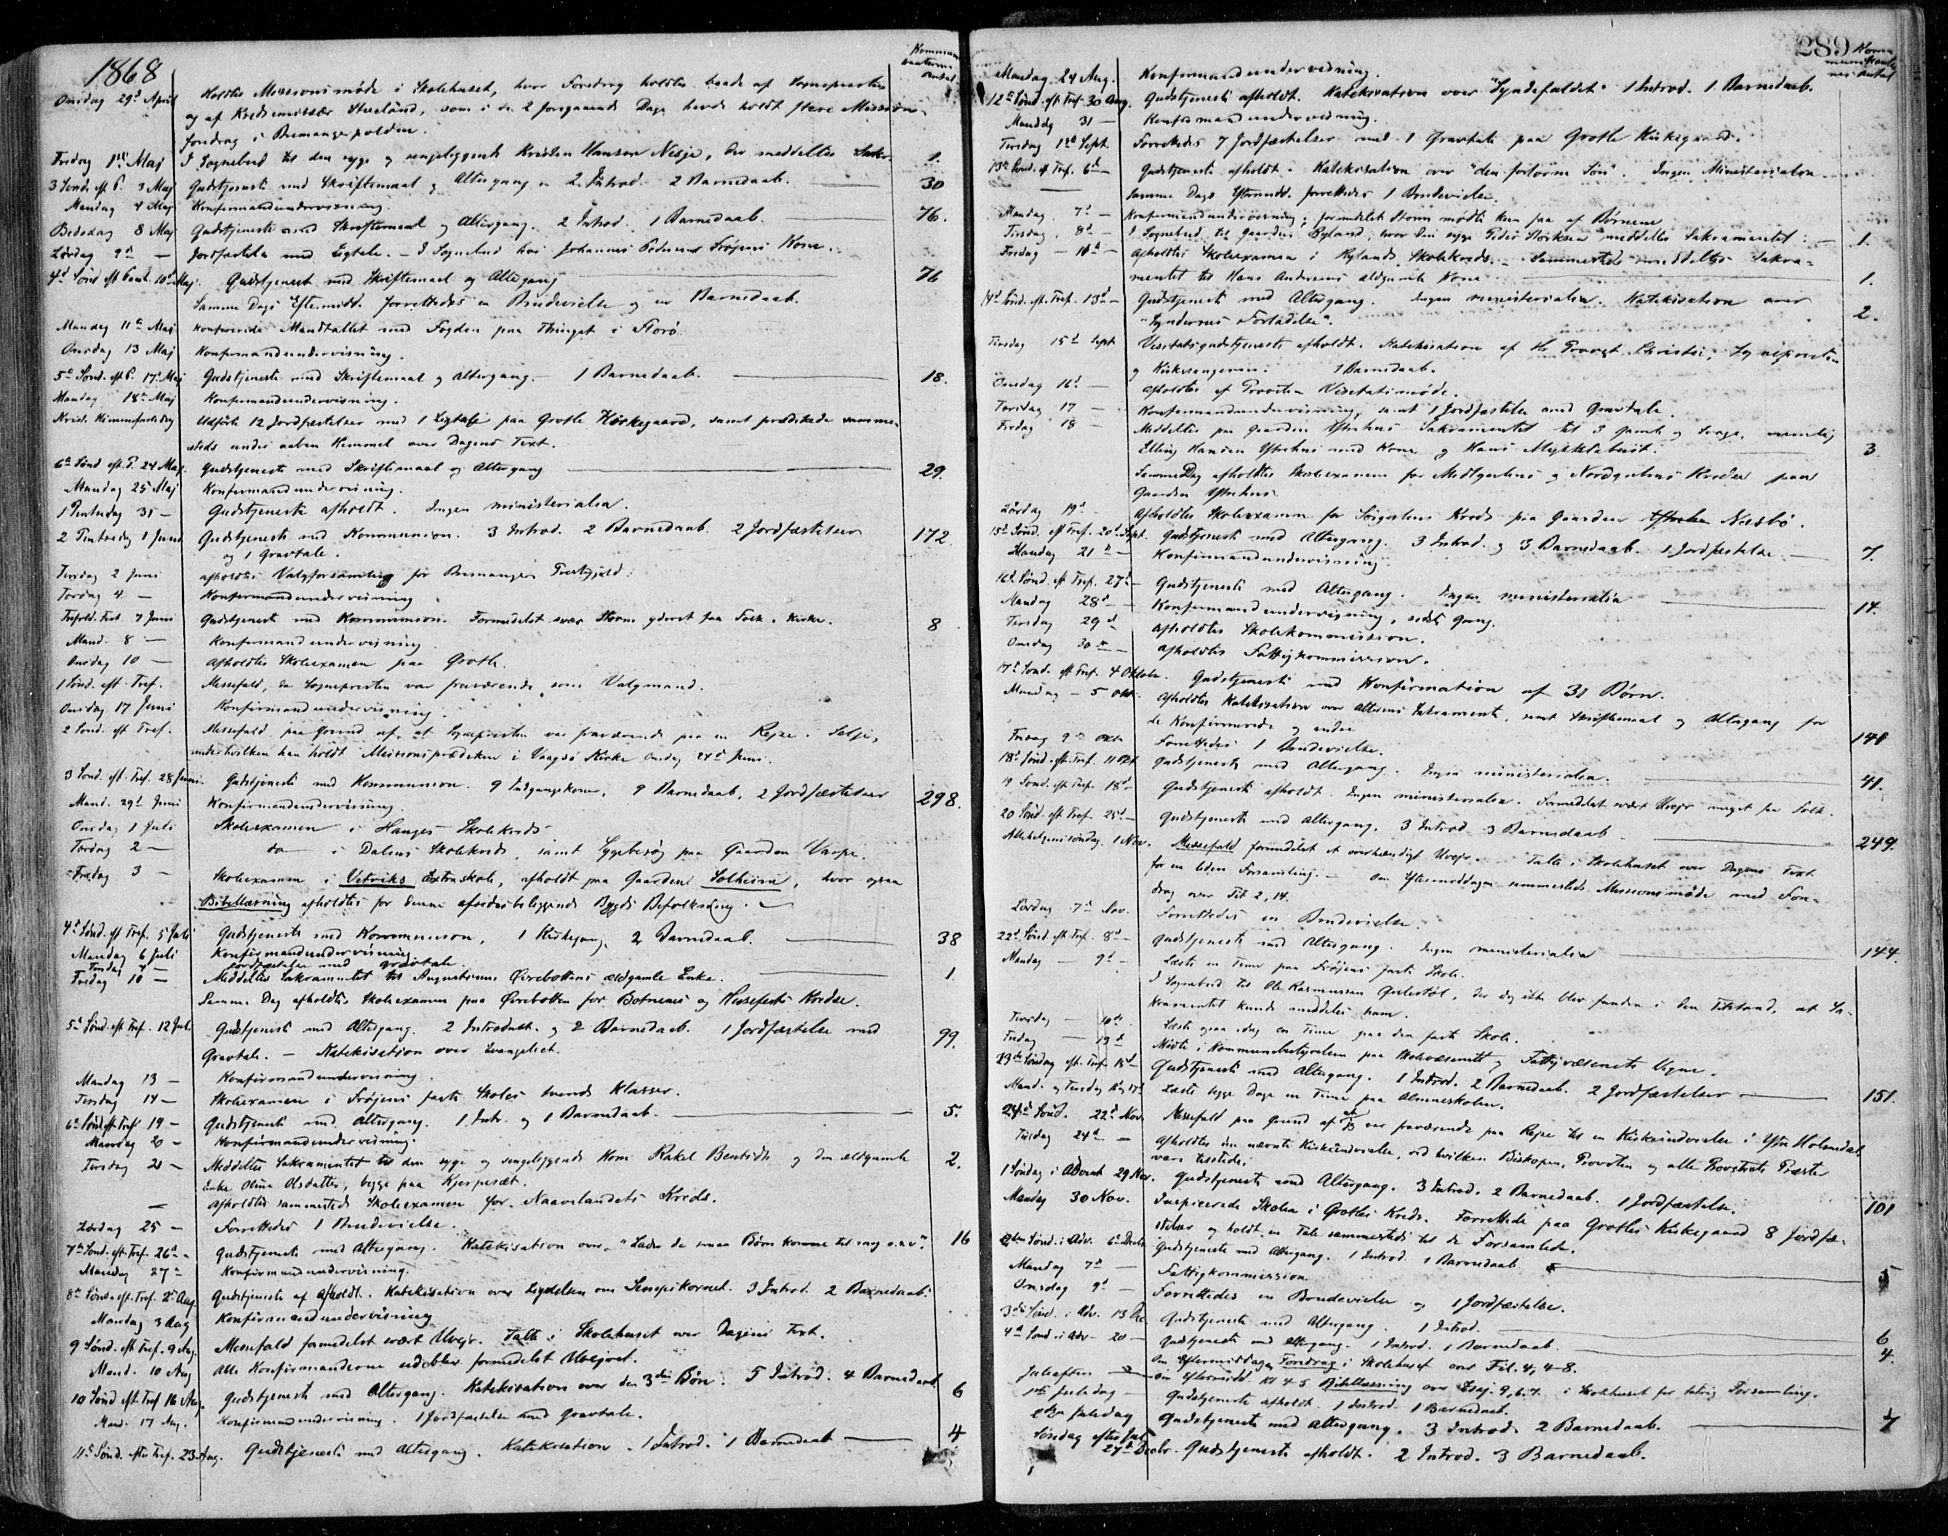 1868
Kommunikanternes Antal
Onsdag 29de April Holdtes Missionsmøde i Skolehuset, hvor Foredrag holdtes baade af Sognepræsten
og af Kredsemissær Stueland, som i de 2 foregaaende Dage havde holdt flere Missions-
foredrag i Bremangerpolden.
Fredag 1ste Maj I Sognebud til den syge og sengeliggende Kristen Hansen Nesje, der meddeltes Sakr. 1.
3 Sønd. eft. P. 3 Maj Gudstjeneste med Skriftemaal og Altergang. 2 Introd. 2 Barnedaab. 30
Mandag 4 Maj Konfirmandundervisning.
Bededag 8 Maj Gudstjeneste med Skriftemaal og Altergang. 2 Introd. 1 Barnedaab. 76.
Lørdag 9de — Jordfæstelse med Ligtale. — I Sognebud hos Johannes Pedersens Frøjens Kone.
4de Sønd. eft. Paask. 10de Maj. Gudstjenest med Skriftemaal og Altergang 76
Samme Dags Eftermidt. forrettedes en Brudevielse og en Barnedaab.
Mandag 11te Maj Konfererede Mandtallet med Fogden paa Thinget i Florø
Onsdag 13 Maj Konfirmandundervisning.
5te Sønd. eft. P. 17de Maj Gudstjeneste med Skriftemaal og Altergang. — 1 Barnedaab. 18.
Mandag 18de Maj Konfirmandundervisning.
Krist. Himmelfartsdag Udførte 12 Jordfæstelser med 1 Ligtale paa Grotle Kirkegaard, samt prædikede samme-
steds under aaben Himmel over Dagens Text.
6te Sønd. eft. P. 24 Maj. Gudstjeneste med Skriftemaal og Altergang 29.
Mandag 25 Maj Konfirmandundervisning.
1 Pintsedag 31 — Gudstjeneste afholdt. Ingen ministerialia.
2 Pintsedag 1 Juni Gudstjeneste med Kommunion. 3 Introd. 2 Barnedaab. 2 Jordfæstelser 172.
og 1 Gravtale.
Tirsdag 2 Juni afholdtes Valgforsamling for Bremangers Præstegjeld.
Torsdag 4 — Konfirmandundervisning.
Trefold. Fest 7 Juni Gudstjeneste med Kommunion. Formedelst svær Storm yderst faa Folk i Kirke. 8
Mand. 8 — Konfirmandundervisning.
Onsdag 10 — Afholdtes Skoleexamen paa Grotle.
1 Sønd. eft. Tref. Messefald, da Sognepræsten var fraværende som Valgmand.
Onsdag 17 Juni Konfirmandundervisning.
2 Sønd. eft. Tref. Messefald paa Grund af at Sognepræsten var fraværende paa en Rejse i Selje,
under hvilken han holdt Missionsprædiken i Vaagsø Kirke Onsdag 24de Juni.
3 Sønd. eft. Tref. 28 Juni. Gudstjeneste med Kommunion. 9 Indgangskoner, 9 Barnedaab, 2 Jordfæstelser 298.
Mand. 29de Juni Konfirmandundervisning.
Onsdag 1 Juli Skoleexamen i Hauges Skolekreds
Torsdag 2 — do — i Dalens Skolekreds, samt Sygebesøg paa Gaarden Varpe.
Fredag 3 — Skoleexamen i Vetviks Extraskole, afholdt paa Gaarden Solheim, hvor ogsaa
Bibellæsning afholdtes for denne afsidesbeliggende Bygds Befolkning.
4de Sønd. eft. Tref. 5 Juli Gudstjeneste med Kommunion, 1 Kirkegang, 2 Barnedaab. 38
Mandag 6 Juli Konfirmandundervisning
Tirsdag 7 — Jordfæstelse med Gravtale.
Fredag 10 — Meddeltes Sakramentet til Augustinus Ørebottens ældgamle Enke. 1.
Samme Dag afholdtes Skoleexamen paa Ørebotten for Botnens og Husefests Kredse.
5te Sønd. eft. Tref. 12 Juli Gudstjeneste med Altergang. 2 Introdukt. og 2 Barnedaab. 1 Jordfæstelse med 99.
Gravtale. — Katekisation over Evangeliet.
Mandag 13 — Konfirmandundervisning.
Tirsdag 14 — Skoleexamen i Frøjens faste Skoles Klasser.
6te Sønd. eft. Tref. 19 — Gudstjeneste med Altergang. 1 Intr. og 1 Barnedaab. 5.
Mandag 20 — Konfirmandundervisning.
Tirsdag 21 — Meddeltes Sakramentet til den syge og sengeliggende Kone Rakel Bentsdtr og den ældgamle 2.
Enke Oline Olsdatter, begge paa
— Afholdtes sammesteds Skoleexamen for Naavelandets Kreds.
Lørdag 25 — Forrettedes 1 Brudevielse.
7de Sønd. eft. Tref. 26de — Gudstjeneste med Altergang. Katekisation over "Lader de smaa Børn komme til mig o.s.v." 16
Mandag 27 — Konfirmandundervisning.
8de Sønd. eft. Tref. 2de Aug. Gudstjeneste afholdt. Katekisation over Lignelsen om Senepskornet. 3 Introd. 2 Barnedaab.
Mandag 3 Aug Konfirmandundervisning
9 Sønd. eft. Tref. 9 Aug. Messefald formedelst svært Uvejr. Talte i Skolehuset over Dagens Text.
Mand. 10 Aug Alle Konfirmanderne udeblev formedelst Uvejret.
10 Sønd. eft. Tref. 16 Aug. Gudstjeneste med Altergang. Katekisation over den 3die Bøn. 5 Introd. 4 Barnedaab 6
Mand. 17 Aug. Konfirmandundervisning. 1 Jordfæstelse med Gravtale.
11te Sønd. efter Tref. 23 Aug. Gudstjeneste med Altergang. Katekisation. 1 Introd. 1 Barnedaab 4.
289
Kommunikanternes Antal
Mandag 24 Aug. Konfirmandundervisning.
12te Sønd. eft. Tref. 30 Aug. Gudstjeneste afholdt. Katekisation over "Syndefaldet". 1 Introd. 1 Barnedaab.
Mandag 31 — Konfirmandundervisning.
Tirsdag 1ste Sept. Forrettedes 7 Jordfæstelser med 1 Gravtale paa Grotle Kirkegaard.
13de Sønd. eft. Tref. 6te — Gudstjeneste afholdt. Katekisation over "den fortorne Søn". Ingen Ministerialia.
Samme Dags Eftermidd. forrettedes 1 Brudevielse.
Mandag 7de — Konfirmandundervisning; formedelst Storm mødte kun faa af Børnene
Tirsdag 8de — I Sognebud til Gaarden Ryland, hvor den syge Peder meddeltes Sakramentet. 1.
Torsdag 10de — Afholdtes Skoleexamen i Rylands Skolekreds. Sammesteds meddeltes Sakra-
mentet til Hans Andersens ældgamle Kone. 1.
14de Sønd. eft. Tref. 13de — Gudstjeneste med Altergang. Ingen ministerialia. Katekisation over
"Syndernes Forladelse". 2.
Tirsdag 15de Sept Visitatsgudstjeneste afholdt. Katekisation af Hr Provst Christie;
og Kirkesangeren. 1 Barnedaab.
Onsdag 16de — Afholdtes af Provsten Visitatsmøde.
Torsdag 17 — Konfirmandundervisning, samt 1 Jordfæstelse med Gravtale.
Fredag 18 — Meddeltes paa Gaarden Ytrehus Sakramentet til 3 gamle og svage, nemlig
Elling Hansen Ytrehus med Kone og Hans Myklebust. 3
Samme Dag afholdtes Skoleexamen for Midtgulens og Nordgulens Kredse paa
Gaarden Ytrehus.
Lørdag 19de — Afholdtes Skoleexamen for Sørgulens Kreds paa Gaarden Næsbø.
15de Sønd. eft. Tref. 20de Sept. Gudstjeneste med Altergang. 3 Introd. og 3 Barnedaab. 1 Jordfæstelse — 7.
Mandag 21de — Konfirmandundervisning.
16de Sønd. eft. Tref. 27de — Gudstjeneste med Altergang. Ingen ministerialia 14.
Mandag 28de — Konfirmandundervisning, sidste Gang.
Tirsdag 29de Afholdtes Skolekommission.
Onsdag 30te — Afholdtes Fattigkommission.
17de Sønd. eft. Tref. 4 Oktober. Gudstjeneste med Konfirmation af 31 Børn.
Mandag — 5 Okt. Afholdtes Katekisation over Alterens Sakramente, samt Skriftemaal og Altergang for
de Konfirmerede og andre 148
Fredag 9de Okt. Forrettedes 1 Brudevielse.
18de Sønd. eft. Tref. 11 Okt. Gudstjeneste med Altergang. Ingen ministerialia. 41.
19 Sønd. eft. Tref. 18de — Gudstjeneste afholdt. Ingen ministerialia. Formedelst svært Uvejr meget faa Folk.
20 Sønd. eft. Tref. 25de — Gudstjeneste med Altergang, 3 Introd. 3 Barnedaab 249.
Allehelgenssøndag 1 Nov. Messefald formedelst et overhændigt Uvejr. Talte i Skolehuset over Dagens Text
for en liden Forsamling. — Om Eftermiddagen sammesteds Missionsmøde med Fore-
drag over Tit 2, 14.
Lørdag 7de Nov. Forrettedes en Brudevielse.
22de Sønd. eft. Tref. 8de — Gudstjeneste med Altergang. Ingen ministerialia 144.
Mandag — 9de — Læste en Time paa Frøjens faste Skole.
I Sognebud til Ole Rasmussen der dog ikke blev funden i den Tilstand, at Sa-
kramentet kunde meddeles ham.
Tirsdag — 10de Læste ogsaa idag en Time paa den faste Skole.
Fredag — 13de Mødte i Kommunebestyrelsen paa Skolevæsenets og Fattigvæsenets Vegne.
23de Søndag eft. Tref. 15de Gudstjeneste med Altergang. 1 Introd. 2 Barnedaab. 2 Jordfæstelser — 151.
Mand. og Tirsdag 16 og 17de Læste begge Dage en Time paa Almueskolen.
24de Sønd. 22de Nov. Messefald paa Grund af at var fraværende paa Rejse til en Kirkeindvielse i Ytre Holmedal.
Tirsdag 24de — Afholdtes den nævnte Kirkeindvielse, ved hvilken Biskopen, Provsten og alle Provstiets Præster
vare tilstede.
1 Søndag i Advent 29 Nov. Gudstjeneste med Altergang. 3 Introd. 2 Barnedaab. 1 Jordfæstelse. 101
Mandag 30 Nov. Inspicerede Skolen i Grotles Kreds. Forrettede paa Grotles Kirkegaard 8 Jordfæ-
stelser og holdt en Tale sammesteds til de Forsamlede.
2den Sønd. i Adv. 6te Decbr Gudstjeneste med Altergang. 1 Introd. 1 Barnedaab. 5
Mandag 7de — Fattigkommission
Onsdag 9de Forrettedes en Brudevielse og 1 Jordfæstelse.
3die Sønd. i Adv. 13 De Gudstjeneste med Altergang. 1 Introd. 6
4de Sønd. i Adv. — 20 — Gudstjeneste med Altergang. 1 Introd. 1 Barnedaab. 4.
Om Eftermiddagen Foredrag i Skolehuset over Fil. 4, 4-8.
Juleaften Om Eftermidd. Kl 4-5 Bibellæsning over Esaj. 9, 6.7. i Skolehuset for talrig Forsamling.
1ste Juledag — Gudstjeneste afholdt. 1 Introd. 1 Barnedaab.
2den Juledag Gudstjeneste med Altergang. 3 Introd. 2 Barnedaab. 7
Søndag efter Jul
27de Decbr. Gudstjeneste afholdt. 2 Introd. 3 Barnedaab.